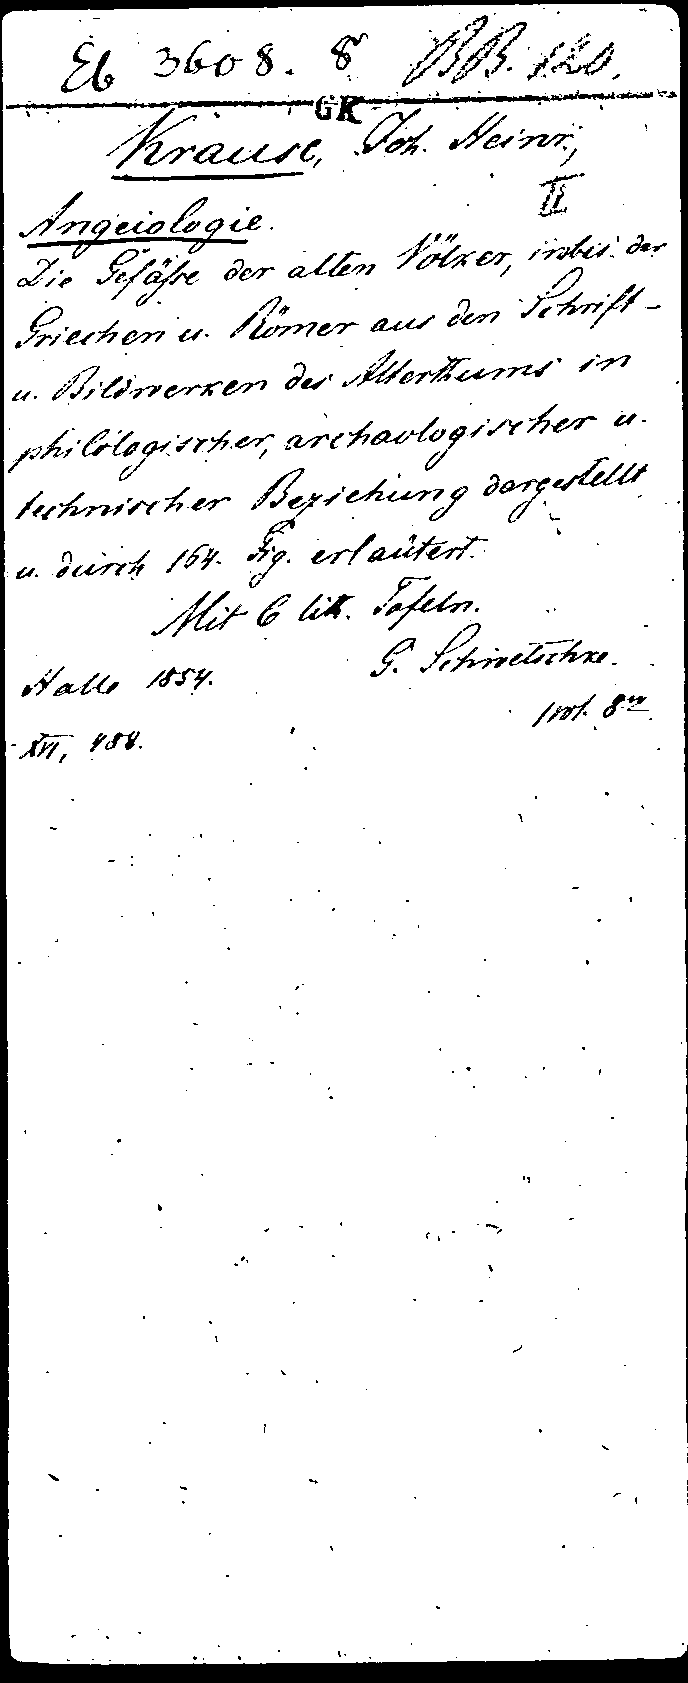 Eb 3608. 8 BB. 120.
GK
Krause, Joh. Heinr.,
II
Angeiologie.
Die Gefäße der alten Völker, insbes. der
Griechen u. Römer aus den Schrift-
u. Bildwerken des Alterthums in
philologischer, archaologischer u.
technischer Beziehung dargestellt
u. durch 164. Fig. erlautert.
Mit 6 lith. Tafeln.
Halle 1854. G. Schwetschke.
1 vol. 8vo
XVI, 484.